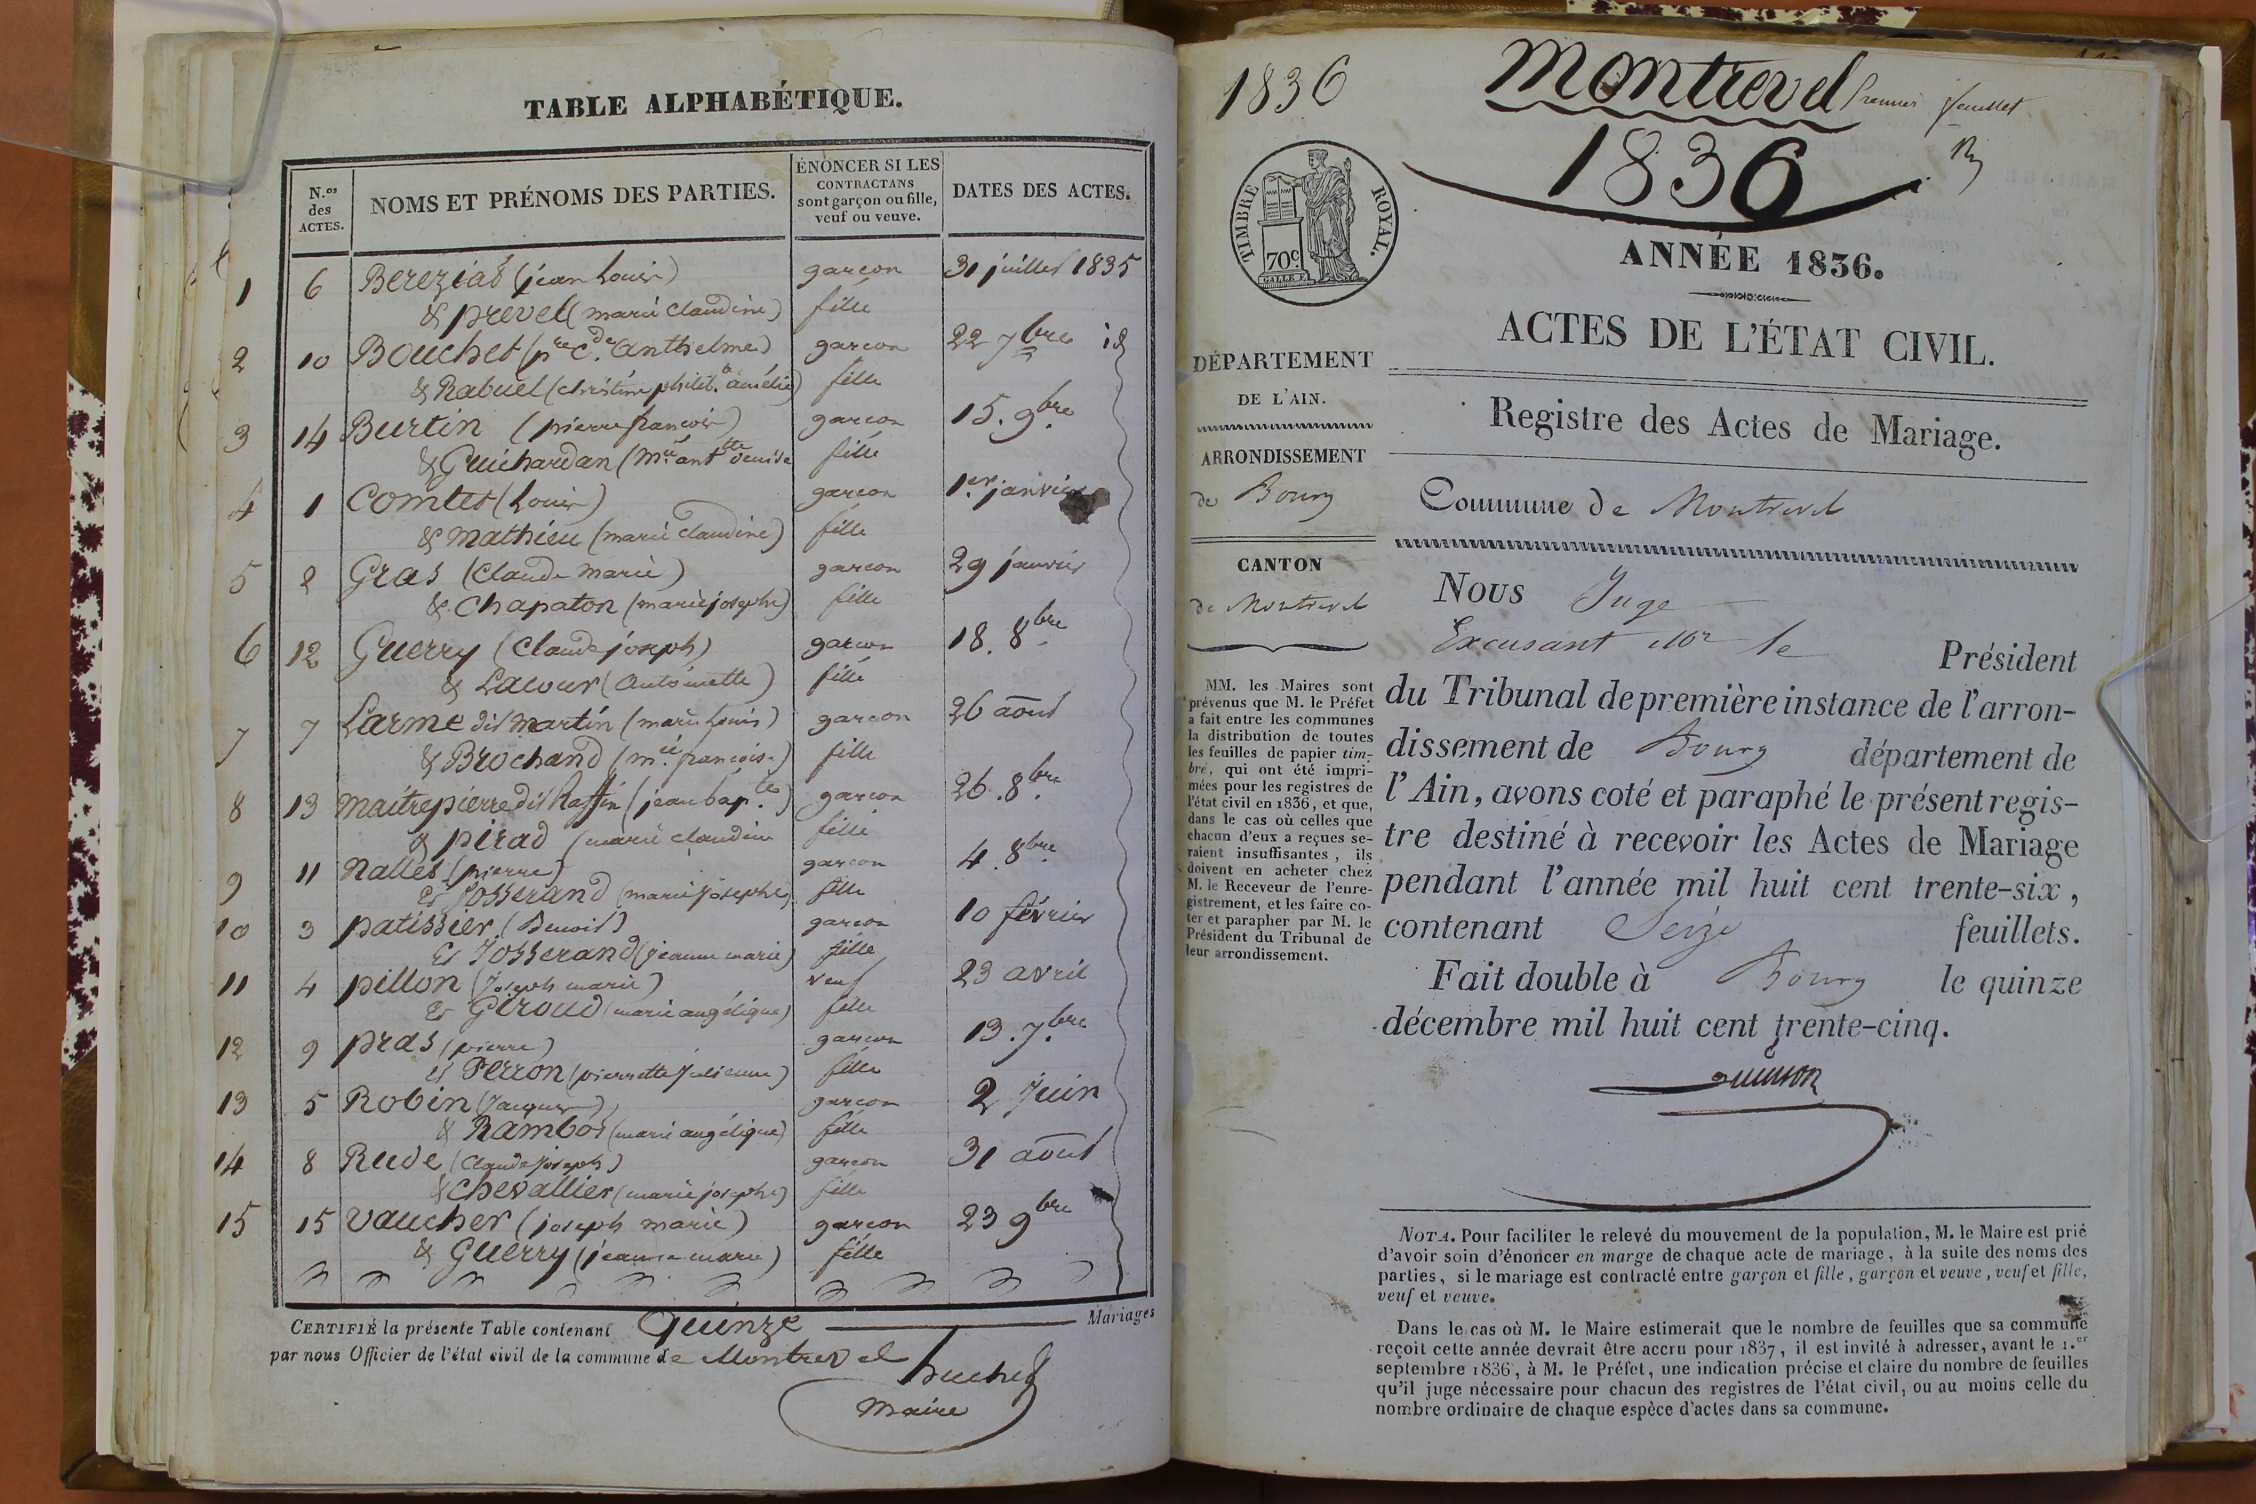 TABLE ALPHABÉTIQUE.
N.os des ACTES.
NOMS ET PRÉNOMS DES PARTIES.
ÉNONCER SI LES CONTRACTANS sont garçon ou fille, veuf ou veuve.
DATES DES ACTES.
1 6 Bereziat (jean Louis) garcon 31 juillet 1835
& prevel (marie Claudine) fille
2 10 Bouchet (pre Cde Anthelme) garcon 22 7bre id
& Rabuel (christine philib.te amélie) fille
3 14 Burtin (pierre françois) garcon 15. 9bre
& Guichardan (Mie antte denise fille
4 1 Comtet (Louis) garcon 1.er janvier
& Mathieu (marie claudine) fille
5 2 Gras (Claude Marie) garcon 29 janvier
& Chapaton (marie josephe) fille
6 12 Guerry (Claude joseph) garcon 18. 8bre
& Lacour (Antoinette) fille
7 7 Larme dit Martin (marie Louis) garcon 26 août
& Brochand (mie françoise) fille
8 13 Maitrepierre dit Raffin (jean bap.te) garcon 26. 8bre
& pirad (marie claudine fille
9 11 Nallet (pierre) garcon 4. 8bre
& Josserand (marie josephe) fille
10 3 patissier (Benoit) garcon 10 février
& Josserand (jeanne marie) fille
11 4 pillon (Joseph marie) veuf 23 avril
& Giroud (marie angélique) fille
12 9 pras (pierre) garcon 13. 7bre
& Perron (pierrette julienne) fille
13 5 Robin (Jacques) garcon 2 juin
& Rambos (marie angélique) fille
14 8 Rude (Claude joseph) garcon 31 août
& Chevallier (marie josephe) fille
15 15 Vaucher (joseph marie) garcon 23 9bre
& Guerry (jeanne marie) fille
CERTIFIÉ la présente Table contenant Quinze Mariages
par nous Officier de l'état civil de la commune de Montrevel
Maire
1836
Montrevel
Premier feuillet
1836
TIMBRE ROYAL.
70c.
ANNÉE 1836.
ACTES DE L'ÉTAT CIVIL.
Registre des Actes de Mariage.
Commune de Montrevel
DÉPARTEMENT
DE L'AIN.
ARRONDISSEMENT
de Bourg
CANTON
de Montrevel
MM. les Maires sont
prévenus que M. le Préfet
a fait entre les communes
la distribution de toutes
les feuilles de papier tim-
bré, qui ont été impri-
mées pour les registres de
l'état civil en 1836, et que,
dans le cas où celles que
chacun d'eux a reçues se-
raient insuffisantes, ils
doivent en acheter chez
M. le Receveur de l'enre-
gistrement, et les faire co-
ter et parapher par M. le
Président du Tribunal de
leur arrondissement.
Nous Juge
Excusant Mr le Président
du Tribunal de première instance de l'arron-
dissement de Bourg département de
l'Ain, avons coté et paraphé le présent regis-
tre destiné à recevoir les Actes de Mariage
pendant l'année mil huit cent trente-six,
contenant Seize feuillets.
Fait double à Bourg le quinze
décembre mil huit cent trente-cinq.
NOTA. Pour faciliter le relevé du mouvement de la population, M. le Maire est prié
d'avoir soin d'énoncer en marge de chaque acte de mariage, à la suite des noms des
parties, si le mariage est contracté entre garçon et fille, garçon et veuve, veuf et fille,
veuf et veuve.
Dans le cas où M. le Maire estimerait que le nombre de feuilles que sa commune
reçoit cette année devrait être accru pour 1837, il est invité à adresser, avant le 1.er
septembre 1836, à M. le Préfet, une indication précise et claire du nombre de feuilles
qu'il juge nécessaire pour chacun des registres de l'état civil, ou au moins celle du
nombre ordinaire de chaque espèce d'actes dans sa commune.